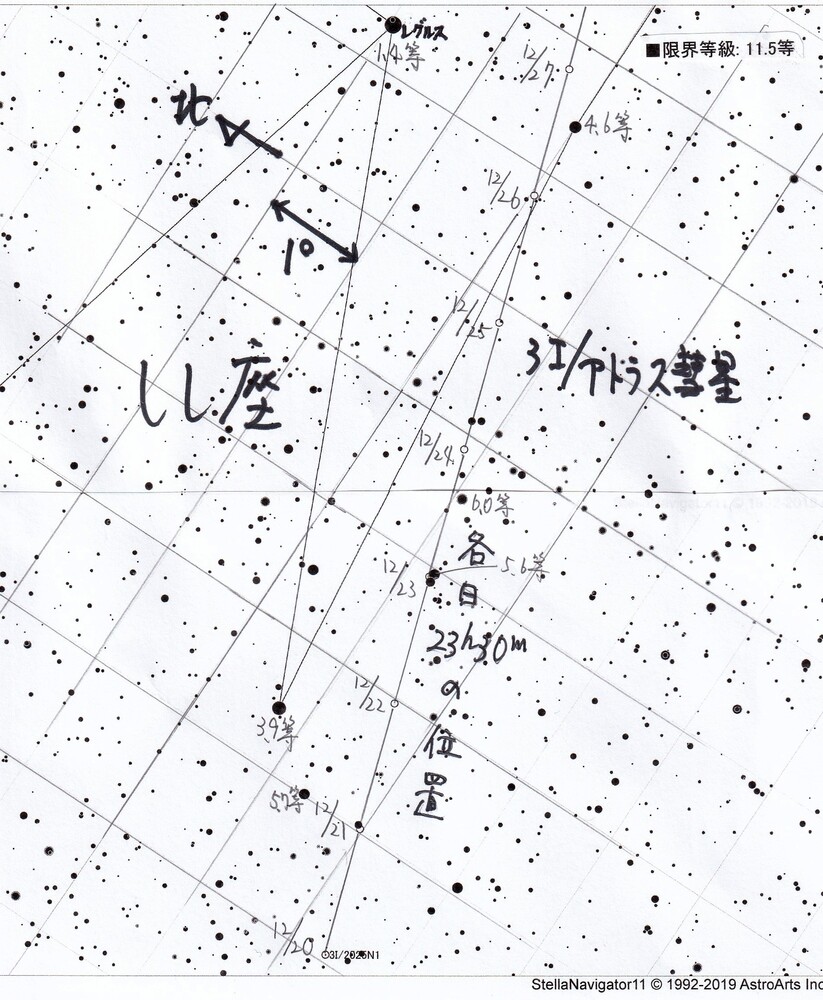 レグルス
1.4等
■限界等級: 11.5等
12/27
北
4.6等
12/26
1°
12/25
3I/アトラス彗星
しし座
12/24
6.0等
5.6等
12/23
各日23h30mの位置
12/22
3.9等
5.7等
12/21
12/20
3I/2025N1
StellaNavigator11 © 1992-2019 AstroArts Inc